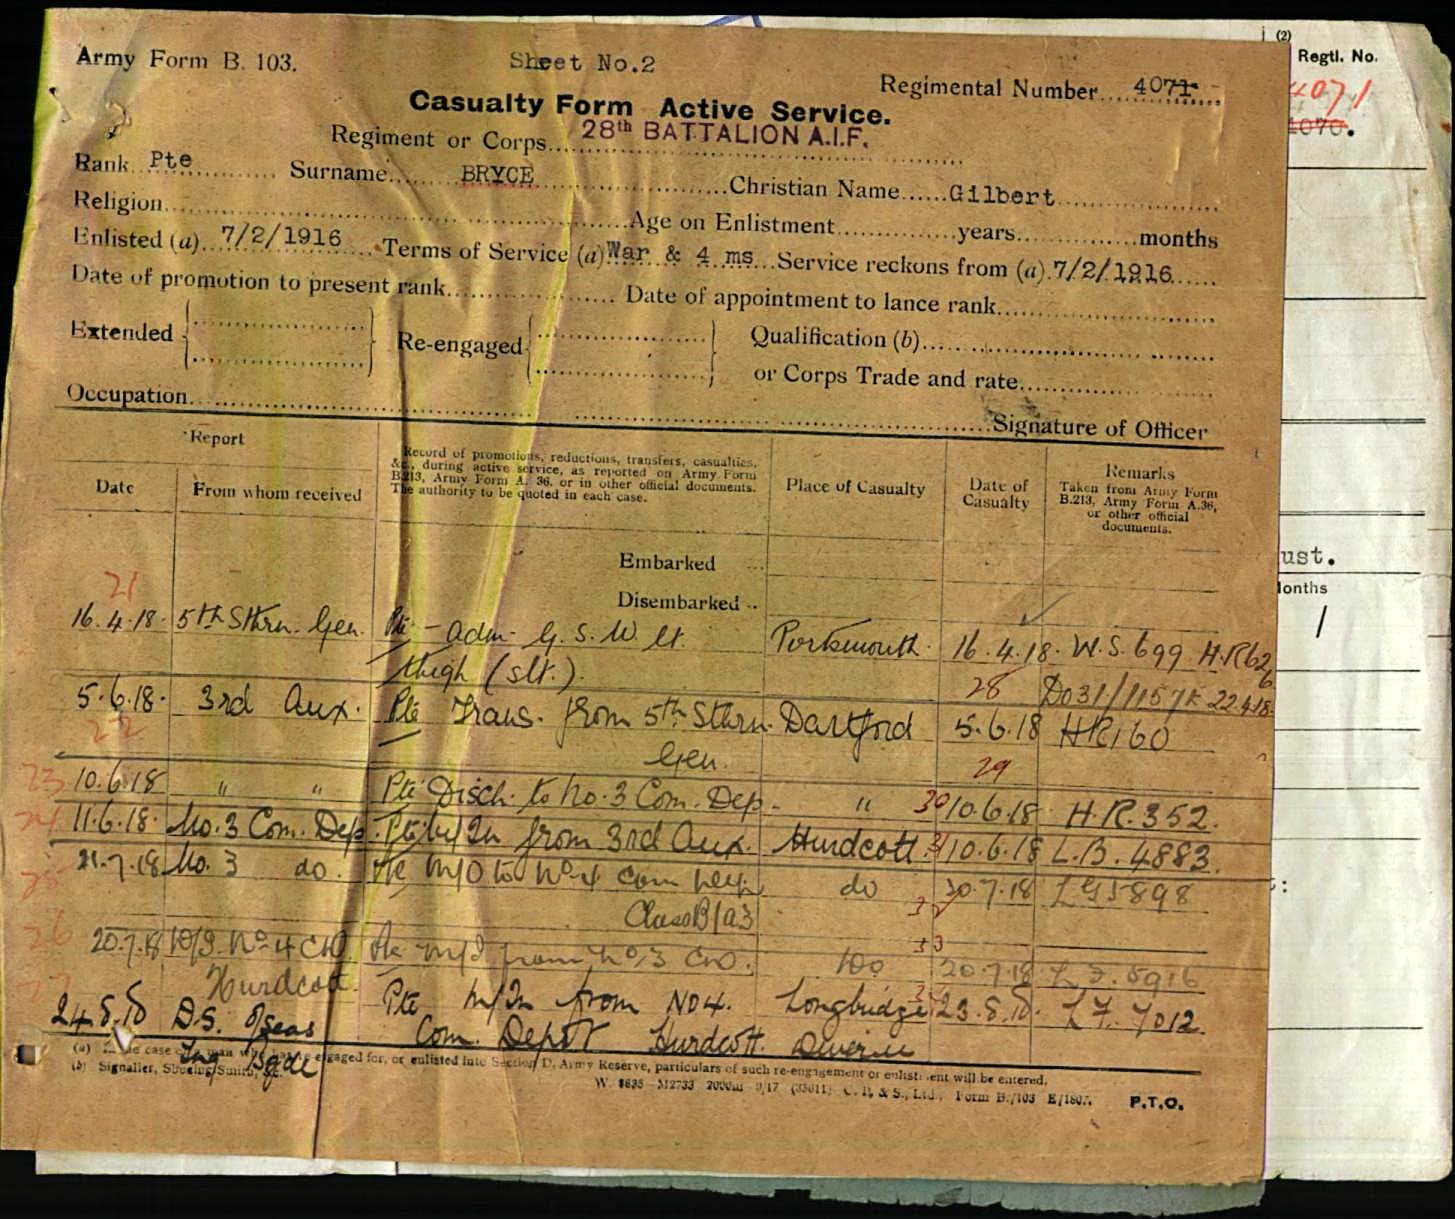 (2)
Regtl. No.
4071
4070.
Army Form B. 103.
Sheet No.2
Regimental Number....4071
Casualty Form Active Service.
Regiment or Corps 28th BATTALION A.I.F.
Rank Pte Surname BRYCE Christian Name Gilbert
Religion Age on Enlistment years months
Enlisted (a) 7/2/1916 Terms of Service (a) War & 4 ms Service reckons from (a) 7/2/1916
Date of promotion to present rank Date of appointment to lance rank
Extended Re-engaged Qualification (b)
or Corps Trade and rate
Occupation Signature of Officer
Report
Date From whom received
Record of promotions, reductions, transfers, casualties,
&c., during active service, as reported on Army Form
B.213, Army Form A. 36, or in other official documents.
The authority to be quoted in each case.
Place of Casualty
Date of
Casualty
Remarks
Taken from Army Form
B.213, Army Form A.36,
or other official
documents.
Embarked
Disembarked
ust.
onths
1
21
16.4.18. 5th Sthrn. Gen. Pte - adm. G.S.W. lt. Portsmouth. 16.4.18. W.S. 699 H.R62
thigh (slt.). 28 Do31/1157K 22.4.18.
5.6.18. 3rd Aux. Pte Trans. from 5th Sthrn. Dartford 5.6.18 HR160
22 Gen. 29
23 10.6.18 " " Pte Disch. to No.3 Com. Dep. " 30 10.6.18. H.R.352.
24 11.6.18. No.3 Com. Dep. Pte M/In from 3rd Aux. Hurdcott. 31 10.6.18 L.B. 4883.
25 21.7.18 No. 3 do. Pte M/O to No 4 Com Dep do 20.7.18 5898
Class B1a3 32
26 20.7.18 No 4 CD. Pte M/I from No 3 CD. do 33 20.7.18 5916
Hurdcott.
27 24.8.18 D.S. O/seas Pte M/In from No 4. Longbridge 23.8.18. 7012.
Trg Bgde Com. Depot Hurdcott. Deverill
(a) In the case of a man who has re-engaged for, or enlisted into Section D, Army Reserve, particulars of such re-engagement or enlistment will be entered.
(b) Signaller, Shoeing Smith,
W. 8635—M2733 2000m 9/17 (33611) C. P. & S., Ltd., Form B./103 E/1807. P.T.O.